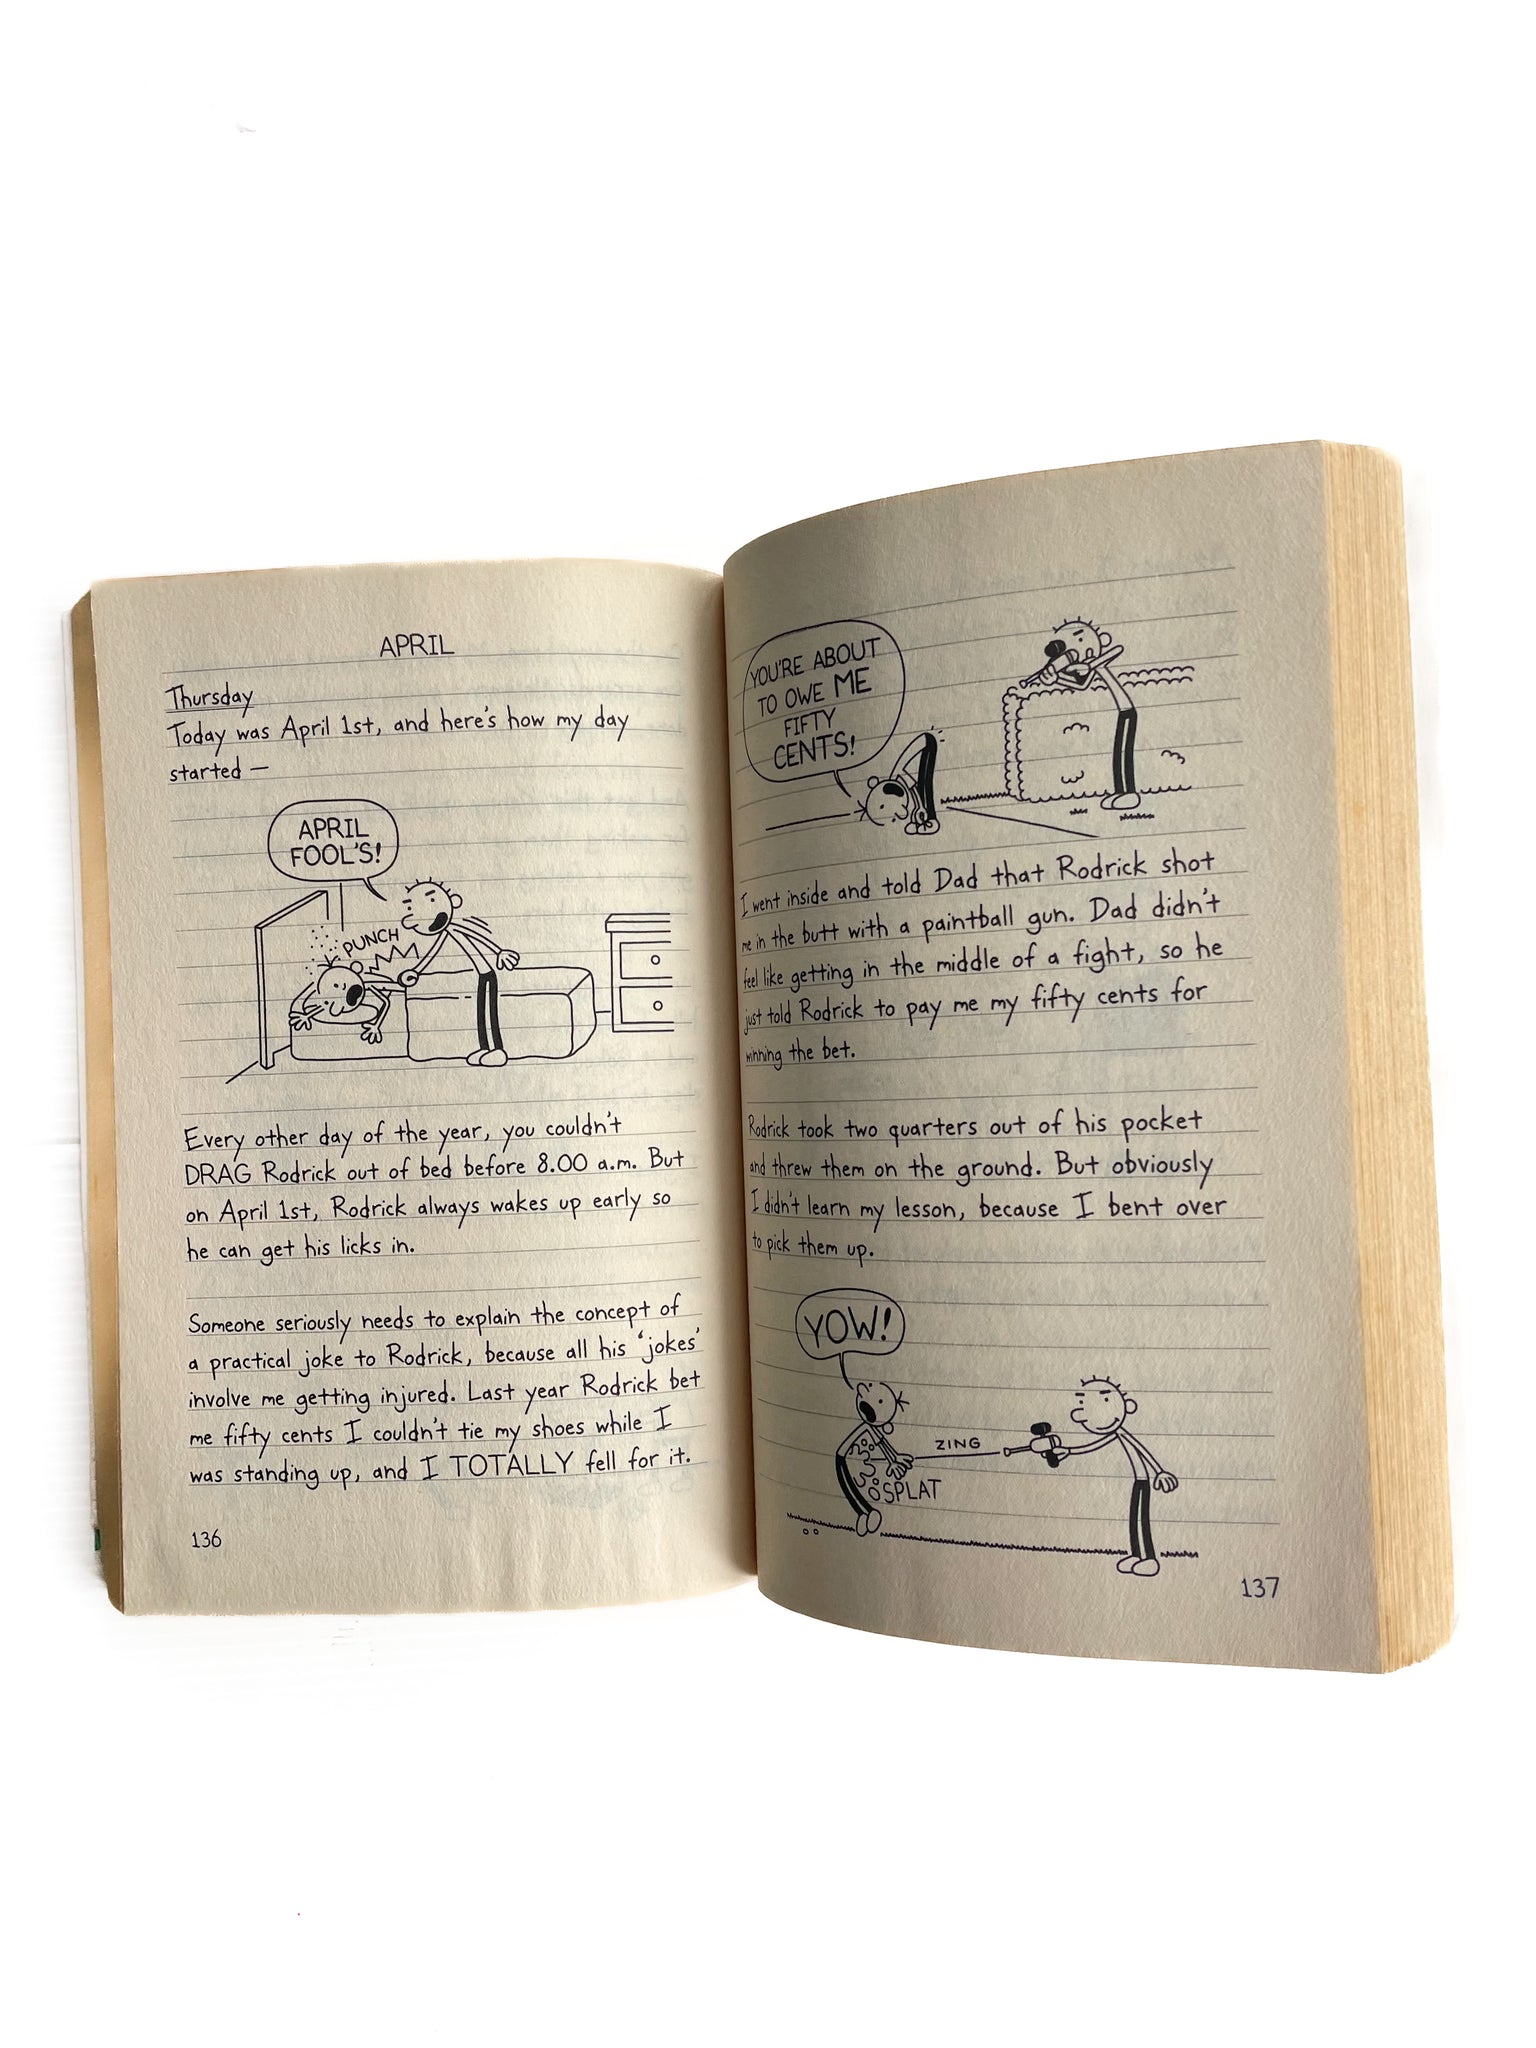 APRIL
Thursday
Today was April 1st, and here's how my day
started —
APRIL
FOOL'S!
PUNCH
Every other day of the year, you couldn't
DRAG Rodrick out of bed before 8.00 a.m. But
on April 1st, Rodrick always wakes up early so
he can get his licks in.
Someone seriously needs to explain the concept of
a practical joke to Rodrick, because all his ‘jokes’
involve me getting injured. Last year Rodrick bet
me fifty cents I couldn't tie my shoes while I
was standing up, and I TOTALLY fell for it.
136
YOU'RE ABOUT
TO OWE ME
FIFTY
CENTS!
I went inside and told Dad that Rodrick shot
me in the butt with a paintball gun. Dad didn't
feel like getting in the middle of a fight, so he
just told Rodrick to pay me my fifty cents for
winning the bet.
Rodrick took two quarters out of his pocket
and threw them on the ground. But obviously
I didn't learn my lesson, because I bent over
to pick them up.
YOW!
ZING
SPLAT
137